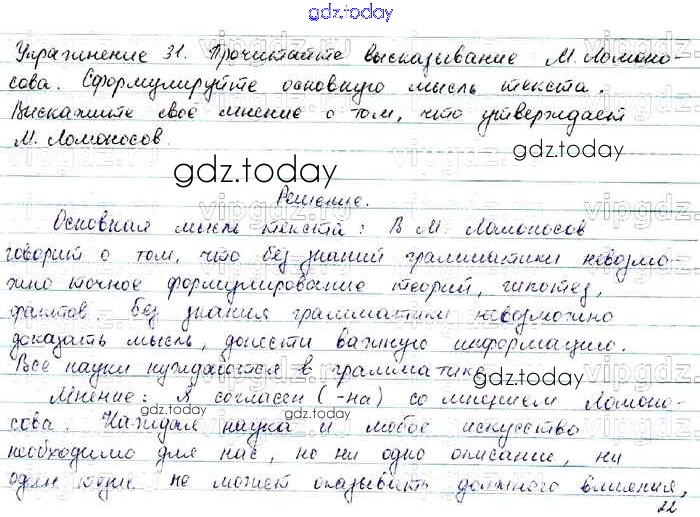 gdz.today
Упражнение 31. Прочитайте высказывание М. Ломоно-
сова. Сформулируйте основную мысль текста.
Выскажите своё мнение о том, что утверждает
М. Ломоносов.
gdz.today
gdz.today
Решение.
Основная мысль текста: В М. Ломоносов
говорит о том, что без знаний грамматики невозмо-
жно точное формулирование теорий, гипотез,
фактов. без знания грамматики невозможно
доказать мысль, донести важную информацию.
Все науки нуждаются в грамматике
gdz.today
Мнение: Я согласен (-на) со мнением Ломоно-
gdz.today gdz.today
сова. Каждая наука и любое искусство
необходимо для нас, но ни одно описание, ни
один не может оказывать должного влияния,
22